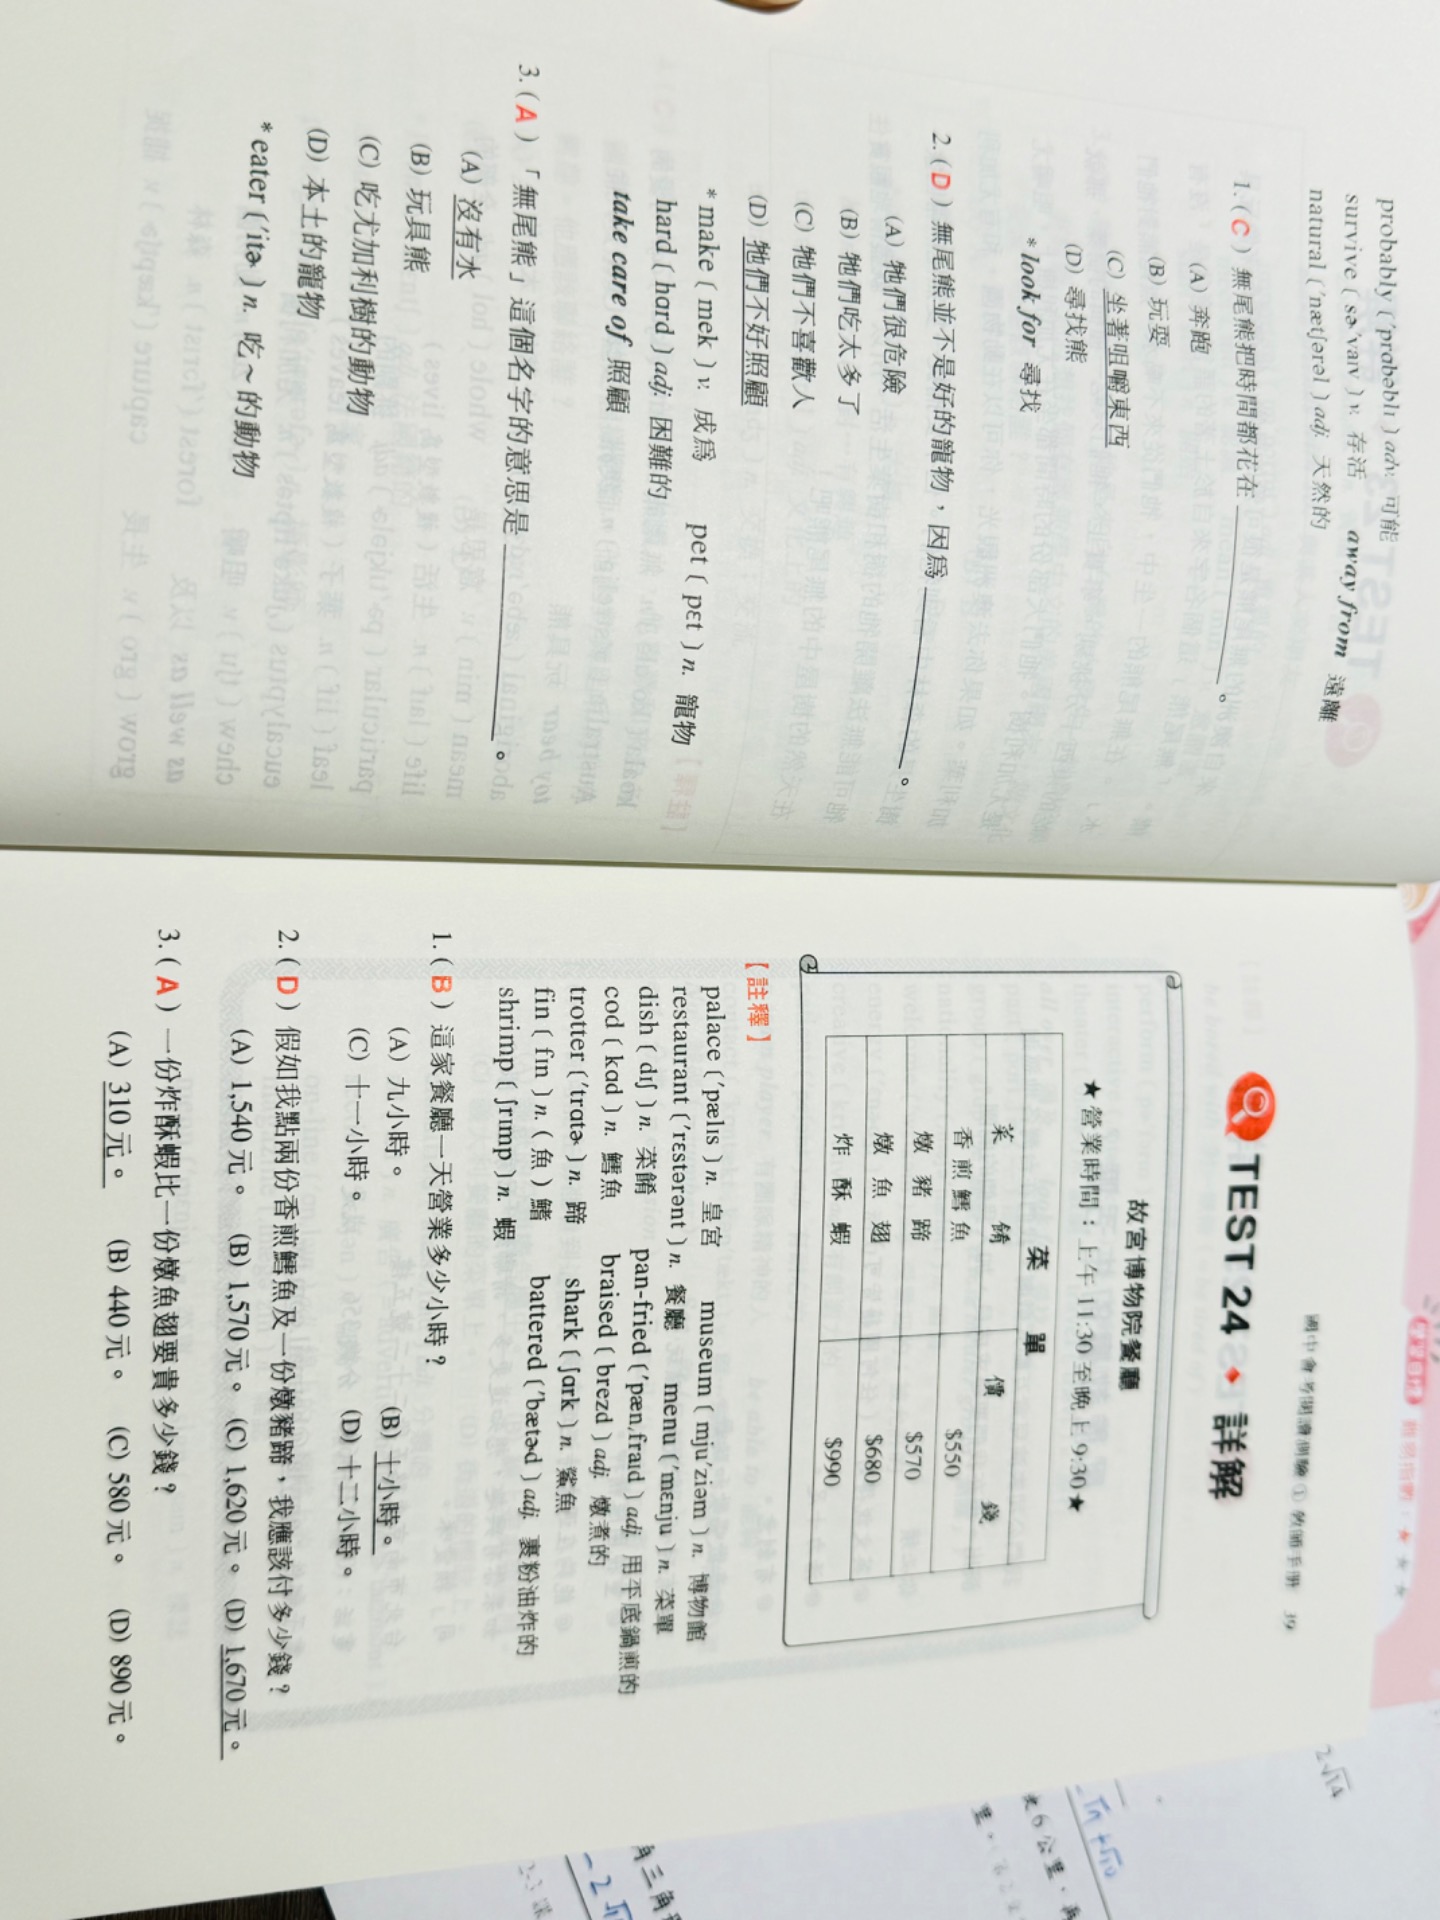 probably (ˈprɑbəblɪ) adv. 可能
survive (səˈvaɪv) v. 存活 away from 遠離
natural (ˈnætʃərəl) adj. 天然的
1. ( C ) 無尾熊把時間都花在 ________。
(A) 奔跑
(B) 玩耍
(C) 坐著咀嚼東西
(D) 尋找熊
* look for 尋找
2. ( D ) 無尾熊並不是好的寵物，因為 ________。
(A) 牠們很危險
(B) 牠們吃太多了
(C) 牠們不喜歡人
(D) 牠們不好照顧
* make (mek) v. 成為 pet (pɛt) n. 寵物
hard (hɑrd) adj. 困難的
take care of 照顧
3. ( A ) 「無尾熊」這個名字的意思是 ________。
(A) 沒有水
(B) 玩具熊
(C) 吃尤加利樹的動物
(D) 本土的寵物
* eater (ˈitɚ) n. 吃～的動物
國中會考閱讀測驗①教師手冊 39
TEST 24 詳解
故宮博物院餐廳
★營業時間：上午11:30至晚上9:30★
菜 單
菜 餚 價 錢
香煎鱈魚 $550
燉豬蹄 $570
燉魚翅 $680
炸酥蝦 $990
【註釋】
palace (ˈpælɪs) n. 皇宮 museum (mjuˈziəm) n. 博物館
restaurant (ˈrɛstərənt) n. 餐廳 menu (ˈmɛnju) n. 菜單
dish (dɪʃ) n. 菜餚 pan-fried (ˈpænˌfraɪd) adj. 用平底鍋煎的
cod (kɑd) n. 鱈魚 braised (brezd) adj. 燉煮的
trotter (ˈtrɑtɚ) n. 蹄 shark (ʃɑrk) n. 鯊魚
fin (fɪn) n. (魚) 鰭 battered (ˈbætɚd) adj. 裹粉油炸的
shrimp (ʃrɪmp) n. 蝦
1. ( B ) 這家餐廳一天營業多少小時？
(A) 九小時。 (B) 十小時。
(C) 十一小時。 (D) 十二小時。
2. ( D ) 假如我點兩份香煎鱈魚及一份燉豬蹄，我應該付多少錢？
(A) 1,540元。 (B) 1,570元。 (C) 1,620元。 (D) 1,670元。
3. ( A ) 一份炸酥蝦比一份燉魚翅要貴多少錢？
(A) 310元。 (B) 440元。 (C) 580元。 (D) 890元。
2√14
角三角